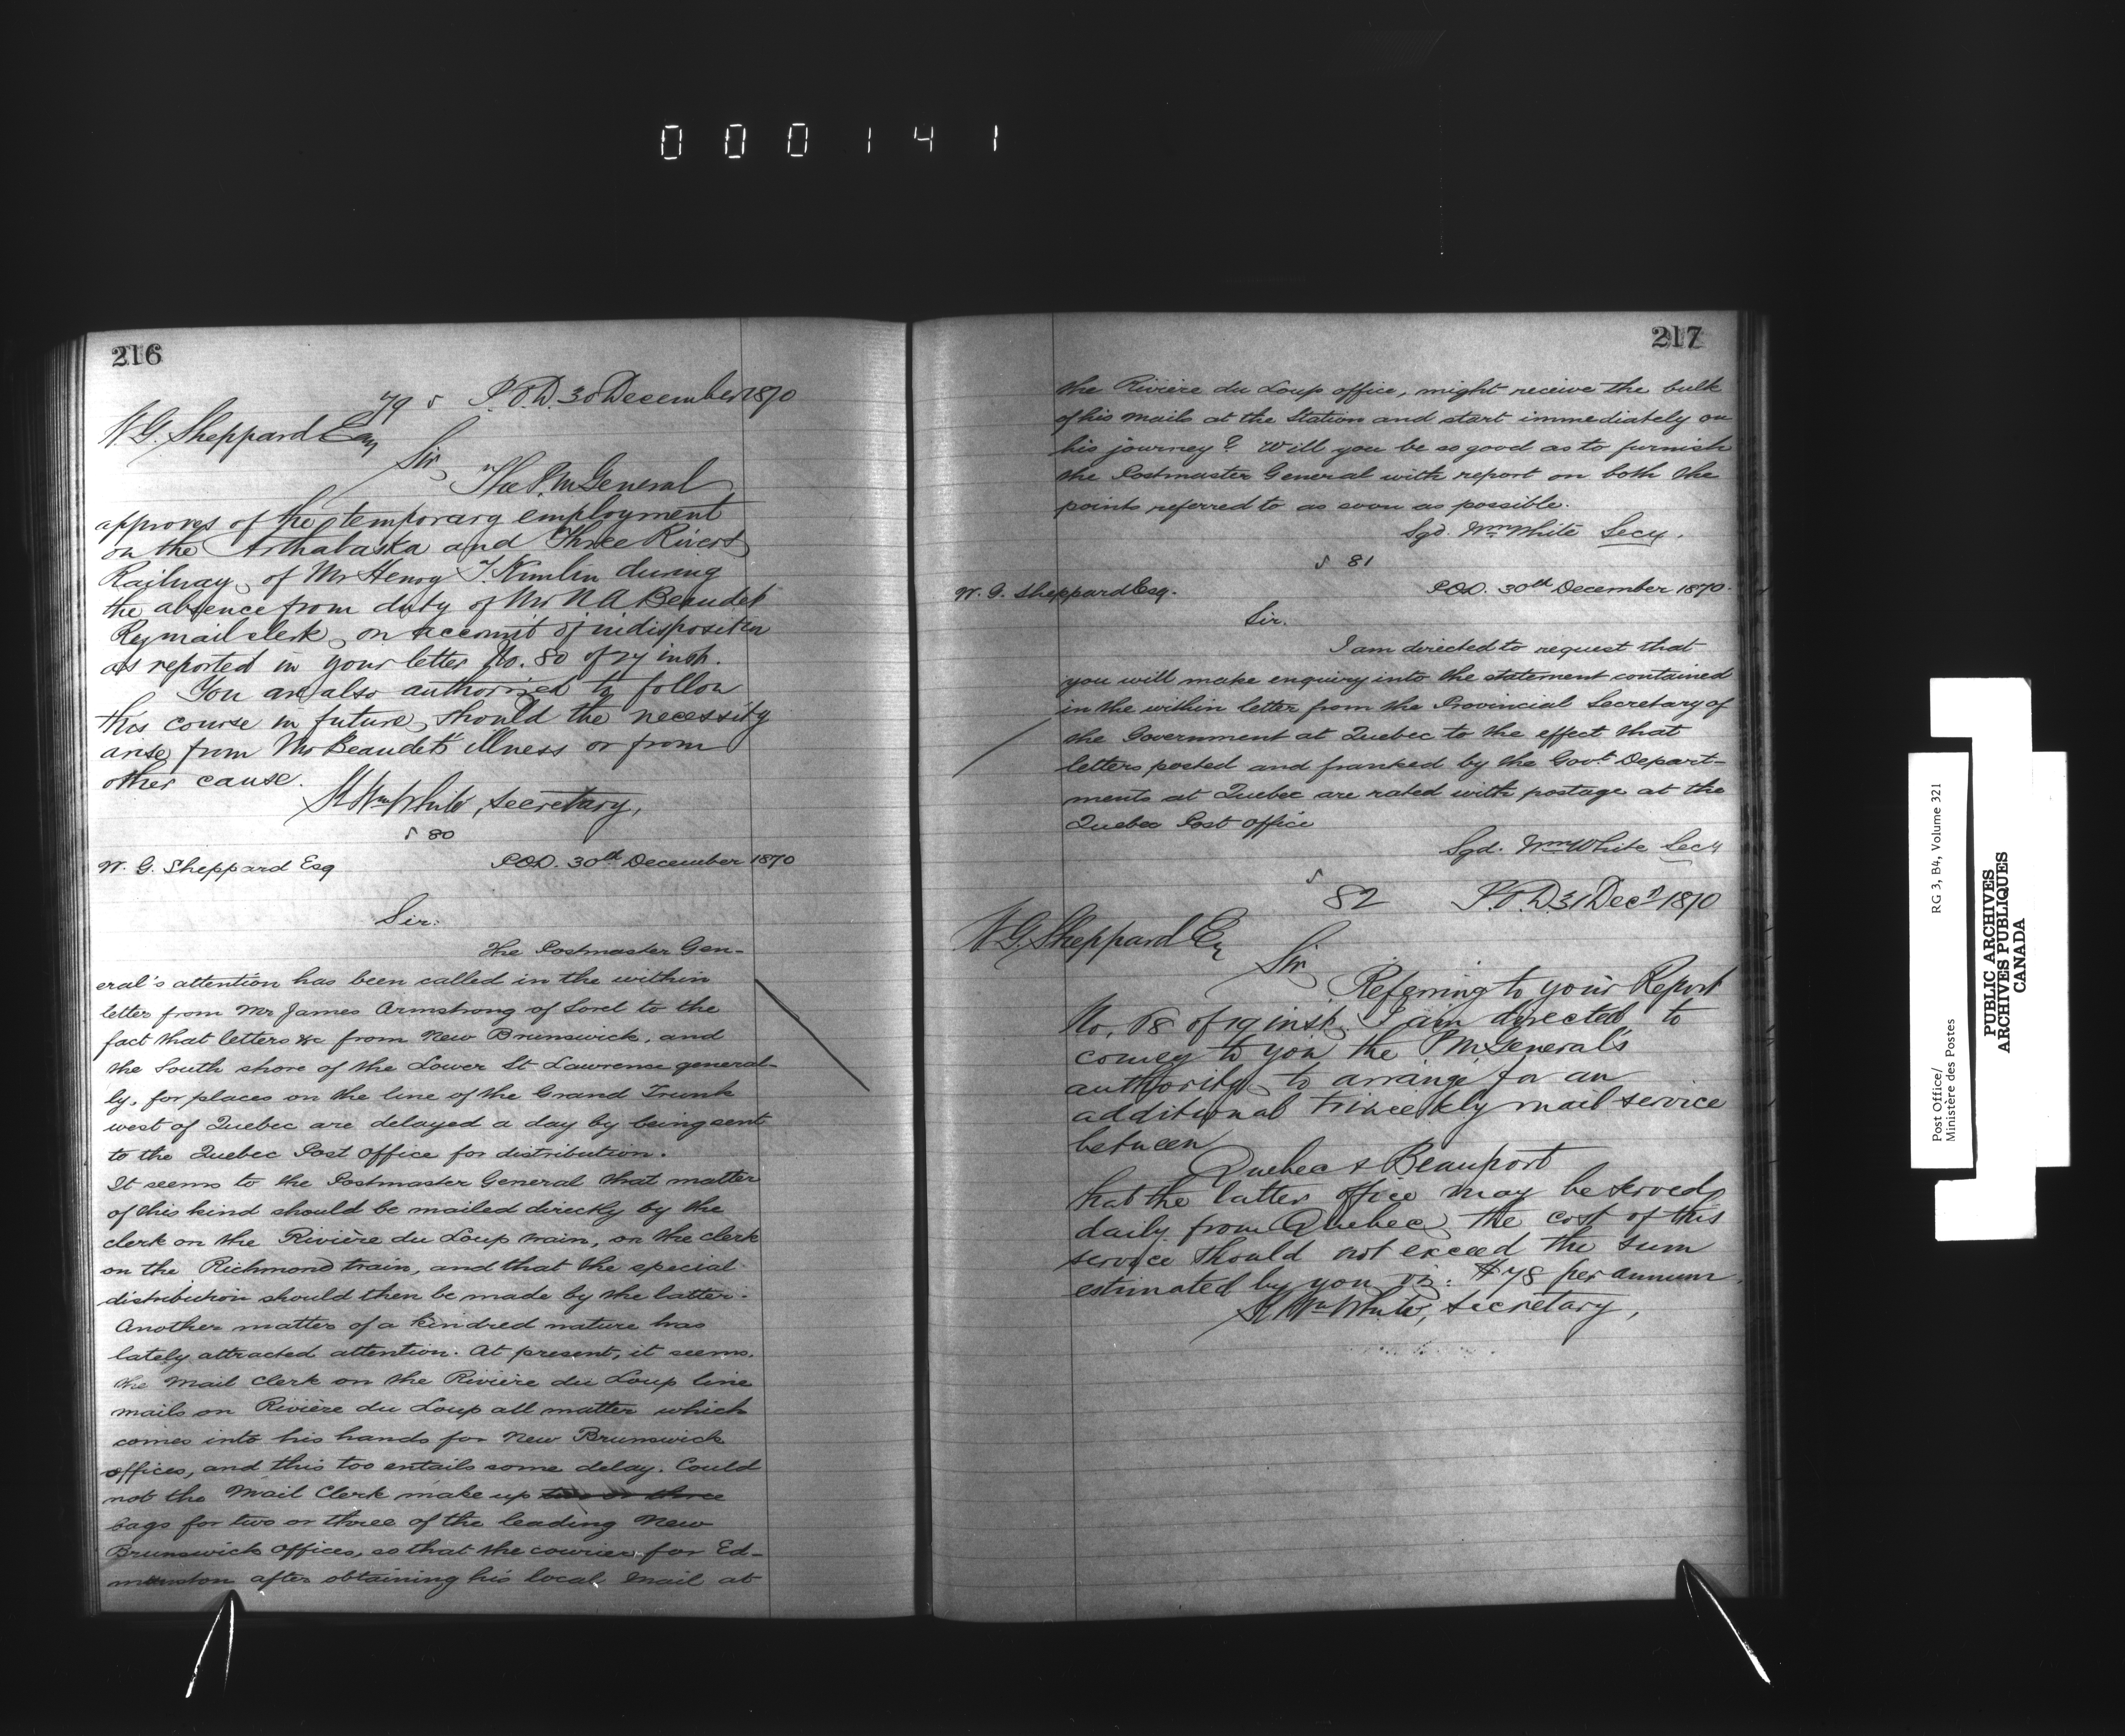 000141
216
79 P.O.D. 30 December 1870
W. G. Sheppard Esq
Sir
The P.M. General
approves of the temporary employment
on the Arthabaska and Three Rivers
Railway, of Mr Henry T. Numlin during
the absence from duty of Mr N A Beaudet
Ry mail clerk, on account of indisposition
as reported in your letter No. 80 of 27 inst.
You are also authorized to follow
this course in future, should the necessity
arise from Mr Beaudet's illness or from
other cause.
Wm White, Secretary,
80
W. G. Sheppard Esq P.O.D. 30th December 1870
Sir:
The Postmaster Gen-
eral's attention has been called in the within
letter from Mr James Armstrong of Sorel to the
fact that letters &c from New Brunswick, and
the South shore of the Lower St Lawrence general-
ly, for places on the line of the Grand Trunk
west of Quebec are delayed a day by being sent
to the Quebec Post Office for distribution.
It seems to the Postmaster General that matter
of this kind should be mailed directly by the
clerk on the Rivière du Loup train, on the clerk
on the Richmond train, and that the special
distribution should then be made by the latter.
Another matter of a kindred nature has
lately attracted attention. At present, it seems,
the Mail Clerk on the Rivière du Loup line
mails on Rivière du Loup all matter which
comes into his hands for New Brunswick
offices, and this too entails some delay. Could
not the Mail Clerk make up two or three
bags for two or three of the leading New
Brunswick offices, so that the courier for Ed-
munston after obtaining his local mail at
217
the Rivière du Loup office, might receive the bulk
of his mails at the Station and start immediately on
his journey? Will you be so good as to furnish
the Postmaster General with report on both the
points referred to as soon as possible.
Sgd. Wm White Secy.
81
W. G. Sheppard Esq. P.O.D. 30th December 1870.
Sir.
I am directed to request that
you will make enquiry into the statement contained
in the within letter from the Provincial Secretary of
the Government at Quebec to the effect that
letters posted and franked by the Govt. Depart-
ments at Quebec are rated with postage at the
Quebec Post Office
Sgd. Wm White Secy
82 P.O.D. 31 Decr 1870
W G. Sheppard Esq
Sir
Referring to your Report
No. 68 of 19 inst, I am directed to
convey to you the P.M. General's
authority to arrange for an
additional triweekly mail service
between
Quebec & Beauport
that the latter office may be served
daily from Quebec, the cost of this
service should not exceed the sum
estimated by you viz: $78 per annum.
Wm White, Secretary,
Post Office/
Ministère des Postes
RG 3, B4, Volume 321
PUBLIC ARCHIVES
ARCHIVES PUBLIQUES
CANADA